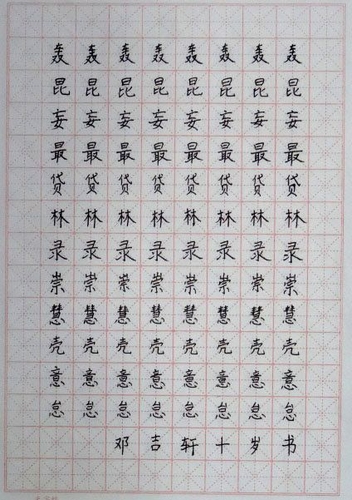 轰轰轰轰轰轰轰轰
昆昆昆昆昆昆昆昆
妾妾妾妾妾妾妾妾
最最最最最最最最
贷贷贷贷贷贷贷贷
林林林林林林林林
录录录录录录录录
崇崇崇崇崇崇崇崇
慧慧慧慧慧慧慧慧
壳壳壳壳壳壳壳壳
意意意意意意意意
怠怠怠怠怠怠怠怠
邓吉轩十岁书